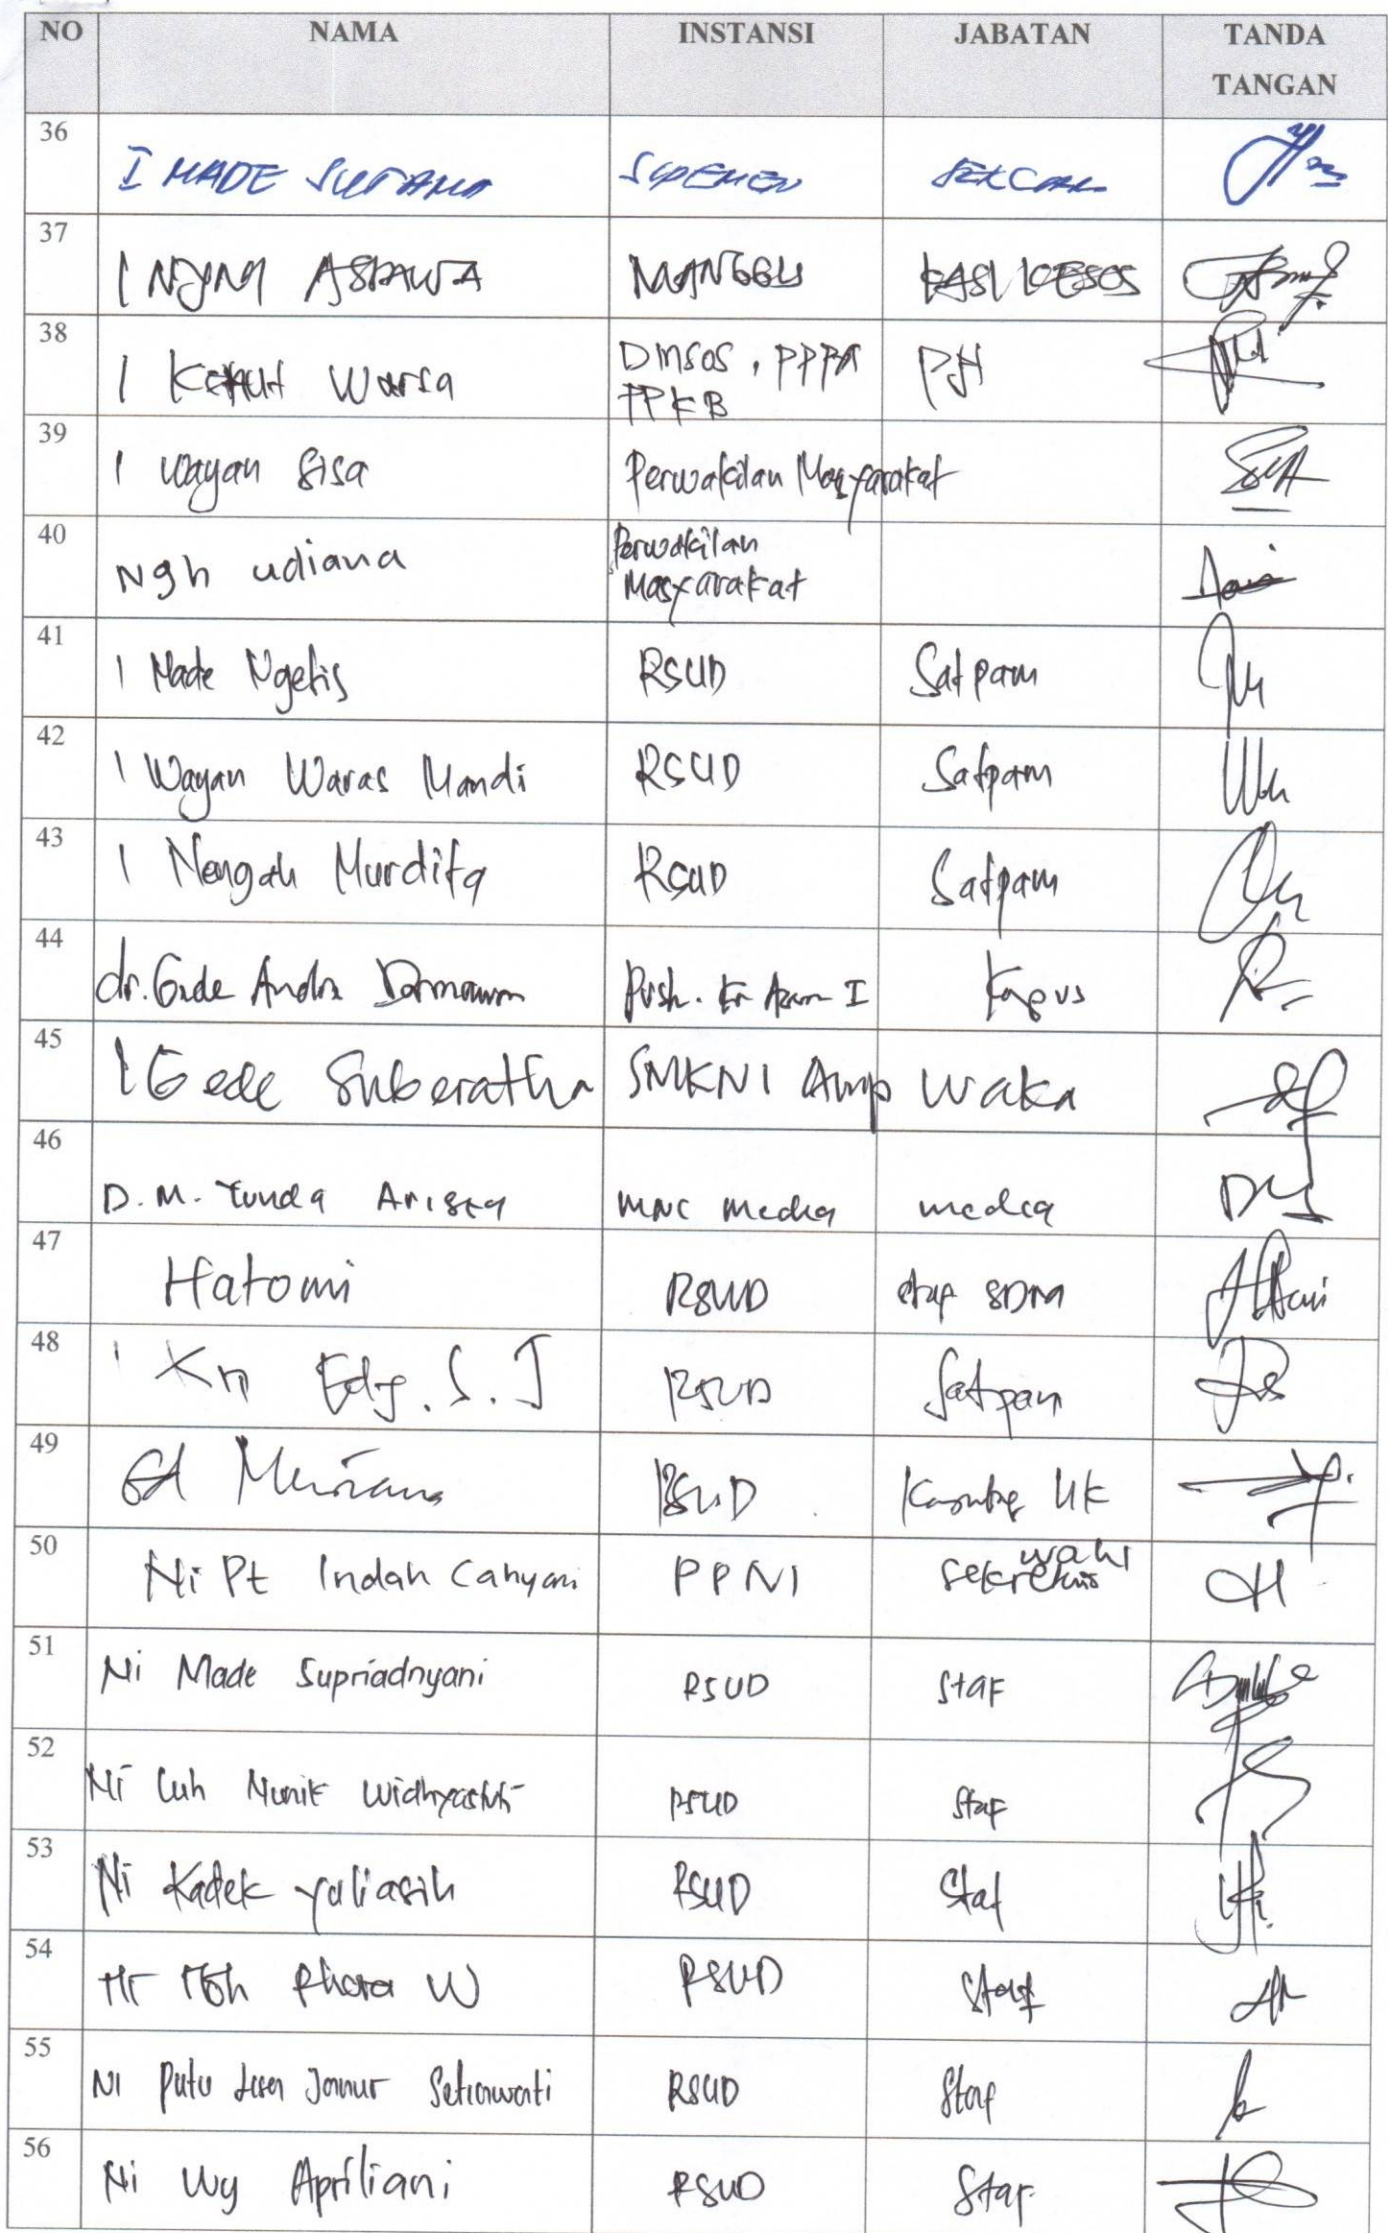 NO NAMA INSTANSI JABATAN TANDA
TANGAN
36
I MADE SUTAMA SIDEMEN SEKCAM
37
I NYMN ASTAWA MANGGIS KASI KESOS
38
I Ketut Warsa DINSOS, PPPA PJF
PPKB
39
I Wayan Sisa Perwakilan Masyarakat
40
Ngh udiana Perwakilan
Masyarakat
41
I Made Ngetis RSUD Satpam
42
I Wayan Waras Mandi RSUD Satpam
43
I Nengah Murdita RSUD Satpam
44
dr. Gede Andra Darmawan Pusk. Kr Asem I Kapus
45
I Gede Suberatha SMKN1 Amp Waka
46
D. M. Yunda Arista MNC Media media
47
Hatomi RSUD staf SDM
48
I Kn Edy. S. J RSUD Satpam
49
Gd RSUD Kasubag UK
50
Ni Pt Indah Cahyani PPNI wakil
sekretaris
51
Ni Made Supriadnyani RSUD Staf
52
Ni Luh Nunik Widhyastuti RSUD Staf
53
Ni Kadek Yuliasih RSUD Staf
54
W RSUD Staf
55
Ni Putu Setiawati RSUD Staf
56
Ni Wy Apriliani RSUD Staf